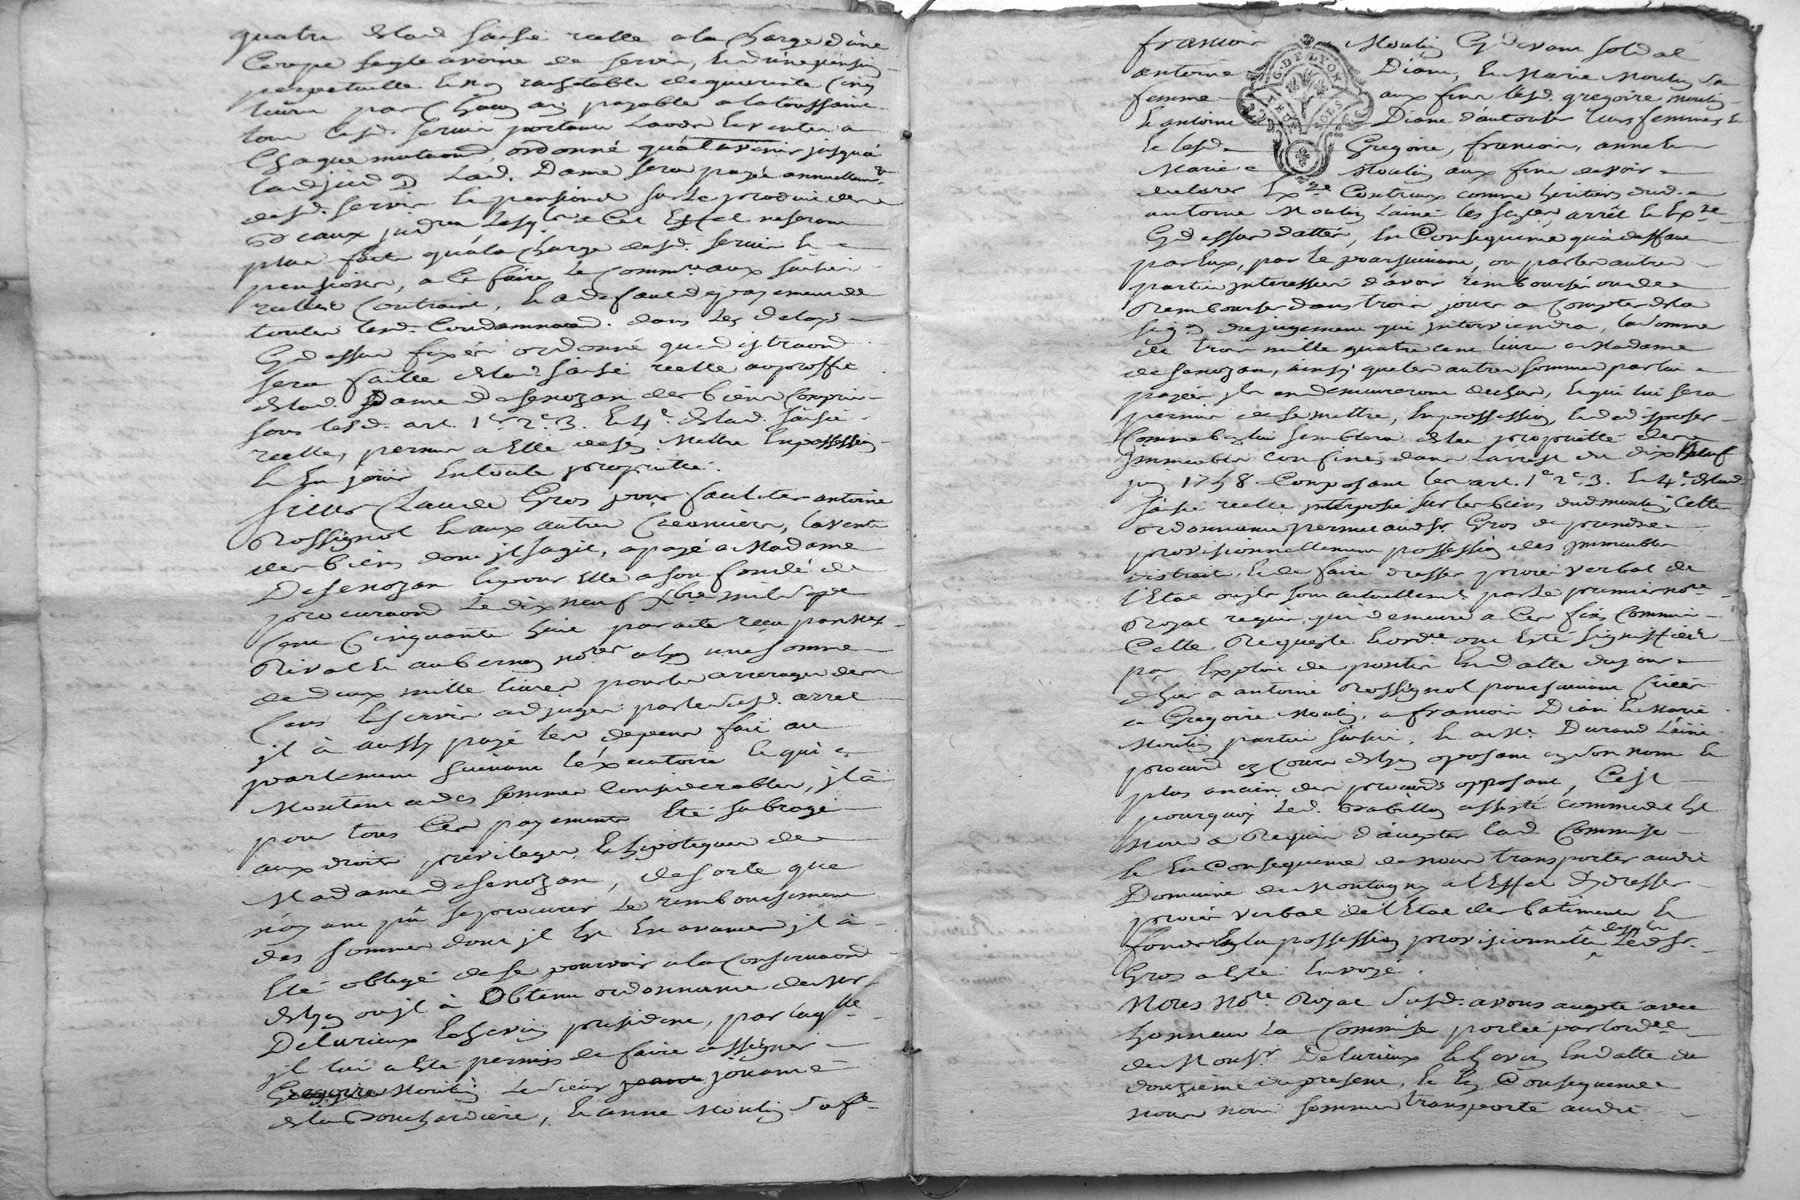 quatre de lad. saisie reelle a la charge d'une
Coupe seigle avoine de servis, et d'une pension
perpetuelle et non rachetable de quarante cinq
livres par chacun an, payable a la toussaint
tous lesd. servis portant laods et ventes a
Chaque mutaon ordonné qu'a l'avenir jusqu'a
ladjudon Lad. Dame sera payée annuellemt
desd. servis et pensions sur le produit des
Beaux judrs lesqls a cet effet ne seront
plus faits qu'a la charge desd. servis et
pensions, a ce faire le Commre aux saisies
reelles Contraint, et a defaut de payement de
toutes lesd. Condamnaons. dans les delays
Cy dessus fixés ordonné que distraon
sera faitte de lad. saisie reelle au proffit
de lad. Dame de senozan des biens Compris
sous lesd. art. 1er 2e 3. et 4e de lad. saisie
reelle, permis a Elle de s'en Mettre En possession
et En jouir En toute proprieté.
Sieur Claude Gros pour faciliter antoine
Rossignol et aux autres Creanciers, la vente
des biens dont il s'agit, a payé a Madame
De senozan et pour Elle a son fondé de
procuraon Le dix neuf Xbre mil sept
Cent Cinquante huit par acte reçu par Mes
Rival et aubernon nores a lyon une somme
de deux mille livres pour les arrerages des
Cens et servis adjugés par led. arret
il à aussy payé les depens fait au
parlement suivant l'executoire ce qui
Montent a des sommes Considerables, il à
pour tous Ces payements Eté subrogé
aux droits privileges et hipoteques de
Madame de senozan, de sorte que
n'ayant pû se procurer Le remboursement
des sommes dont il Est En avance il à
Eté obligé de se pourvoir a la Conservaon
de lyon ou il à Obtenu ordonnance de Mr
Delurieux Echevin president, par laqlle
il lui a eté permis de faire assigner
Gregoire Moulin Le sieur jouanne
de la Bouchardiere, et anne Moulin sa fe
francois Moulin Cy devant soldat
antoine Dian, et Marie Moulin sa
femme aux fins lesd. gregoire moulin
et antoine Dian d'autoriser leurs femmes et
lesd. Gregoire, francois, anne et
Marie Moulin aux fins de voir
declarer Exre Contr'eux comme heritiers dud.
antoine Moulin L'ainé les susd. arrêt et Exre
Cy dessus dattés, En Consequence qu'a deffaut
par Eux, par le poursuivant, ou par les autres
parties interessées d'avoir remboursé ou de
Rembourser dans trois jours a Compter de la
sign. du jugement qui interviendra, la somme
de trois mille quatre cent livres a Madame
de senozan, ainsi que les autres sommes par lui
payées, ils en demeureront dechus, Et qu'il lui sera
permis de se mettre, En possession et de disposer
Comme bon lui semblera de la proprieté des
immeubles confinés dans l'arrest du dix neuf
juin 1758. Composant les art. 1er 2e 3. et 4e de lad.
saisie reelle interposée sur les biens dud. moulin, Cette
ordonnance permet aud. sr Gros de prendre
provisionnellement possession des immeubles
distraits, et de faire dresser procés verbal de
l'Etat ou ils sont actuellement par le premier nore
Royal requis qui demeure a Ces fins Commis
Cette Requeste et ordce ont Esté signiffiées
par Exploit de pontier En datte du jour
d'hier a antoine Rossignol poursuivant Criées
a Gregoire Moulin, a francois Dian et Marie
Moulin parties saisies, et a Me Durand L'ainé
procur. Es Cours de lyon oposant en son nom et
plus ancien des procurs opposant, C'est
pourquoy Led. assisté comme dit Est
nous a Requis d'accepter lad. Commise
et En Consequence de nous transporter aud.
Domaine de Montagny a l'Effet d'y dresser
procés verbal de l'Etat des batimens et
fonds En la possession provisionnelle desquels Led. sr
Gros a Esté Envoyé.
Nores Nore Royal susd. avons accepté avec
honneur La Commise portée par l'ordce
de Monsr Delurieux Echevin En datte du
douzieme du present, et En Consequence
nous nous sommes transporté aud.
G. DE LYON
DEUX SOLS